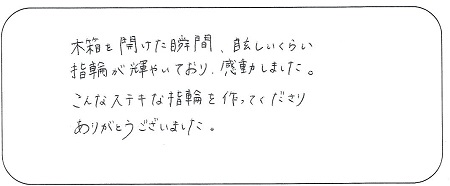 木箱を開けた瞬間、眩しいくらい
指輪が輝やいており、感動しました。
こんなステキな指輪を作ってくださり
ありがとうございました。